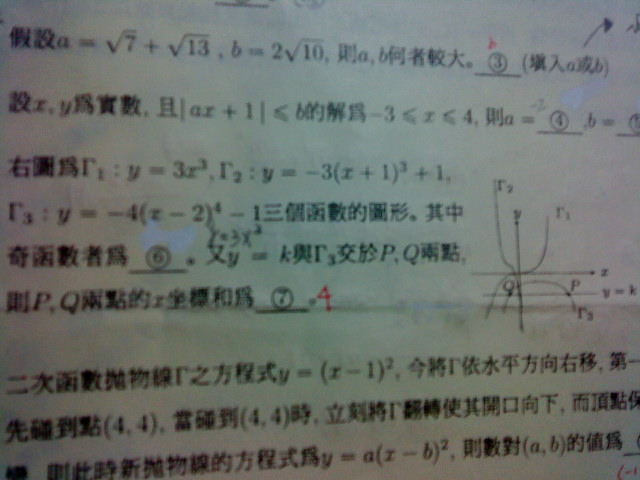 假設a = √7 + √13 , b = 2√10, 則a, b何者較大。 ③ (填入a或b)
b
設x, y爲實數, 且| ax + 1 | ⩽ b的解爲−3 ⩽ x ⩽ 4, 則a = ④ , b =
-2
右圖爲Γ₁ : y = 3x³, Γ₂ : y = −3(x + 1)³ + 1,
Γ₃ : y = −4(x − 2)⁴ − 1三個函數的圖形。其中
奇函數者爲 ⑥ 。又y = k與Γ₃交於P, Q兩點,
則P, Q兩點的x坐標和爲 ⑦ 。4
Γ₂
y
Γ₁
x
Q
P
y = k
Γ₃
二次函數拋物線Γ之方程式y = (x − 1)², 今將Γ依水平方向右移, 第一
先碰到點(4, 4), 當碰到(4, 4)時, 立刻將Γ翻轉使其開口向下, 而頂點保
變, 則此時新拋物線的方程式爲y = a(x − b)², 則數對(a, b)的值爲